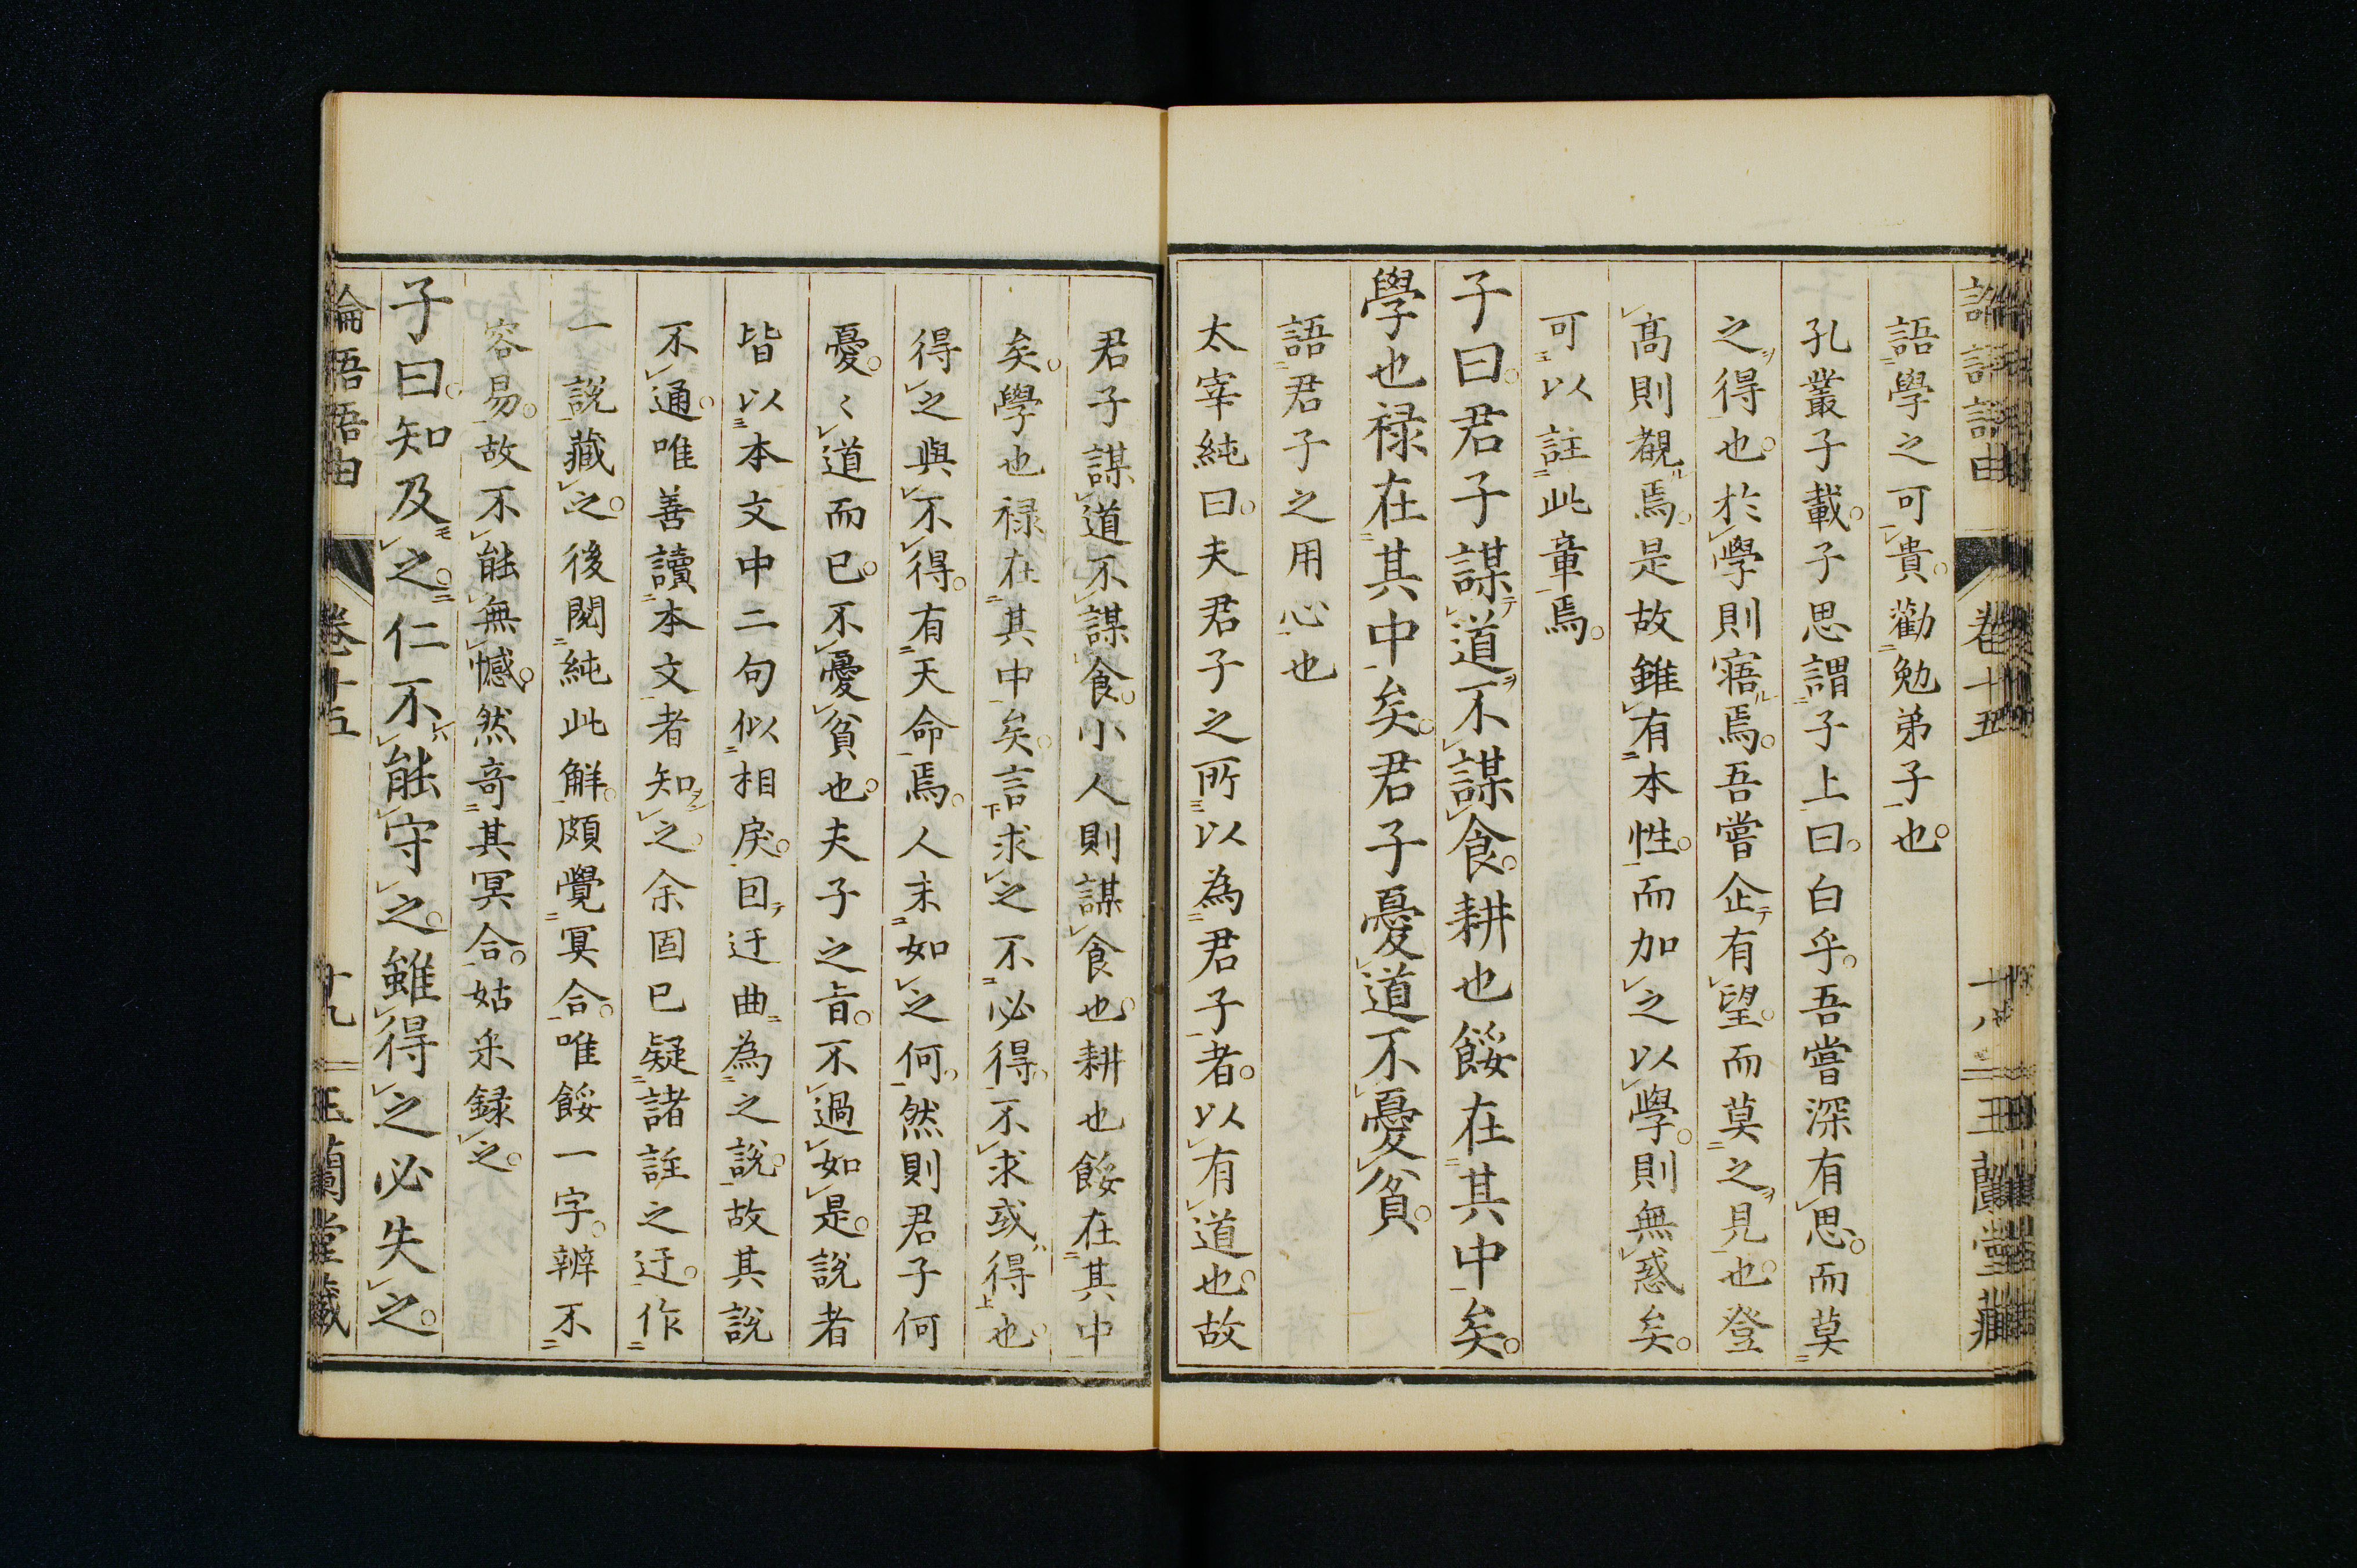 論語語由 卷十五 十八 玉蘭堂藏
語學之可貴。勸勉弟子也。
孔叢子載。子思謂子上曰。白乎。吾嘗深有思。而莫
之得也。於學則寤焉。吾嘗企有望。而莫之見也。登
高則覩焉。是故雖有本性。而加之以學。則無惑矣。
可以註此章焉。
子曰。君子謀道不謀食。耕也餒在其中矣。
學也祿在其中矣。君子憂道不憂貧。
語君子之用心也
太宰純曰。夫君子之所以為君子者。以有道也。故
君子謀道不謀食。小人則謀食也。耕也餒在其中
矣。學也祿在其中矣。言求之不必得。不求或得也。
得之與不得。有天命焉。人末如之何。然則君子何
憂。〻道而已。不憂貧也。夫子之旨。不過如是。說者
皆以本文中二句似相戾。回迂曲為之說。故其說
不通。唯善讀本文者知之。余固已疑諸註之迂。作
一說藏之。後閱純此解。頗覺冥合。唯餒一字。辨不
容易。故不能無憾。然奇其冥合。姑采録之。
子曰。知及之。仁不能守之。雖得之必失之。
論語語由 卷十五 十九 玉蘭堂藏